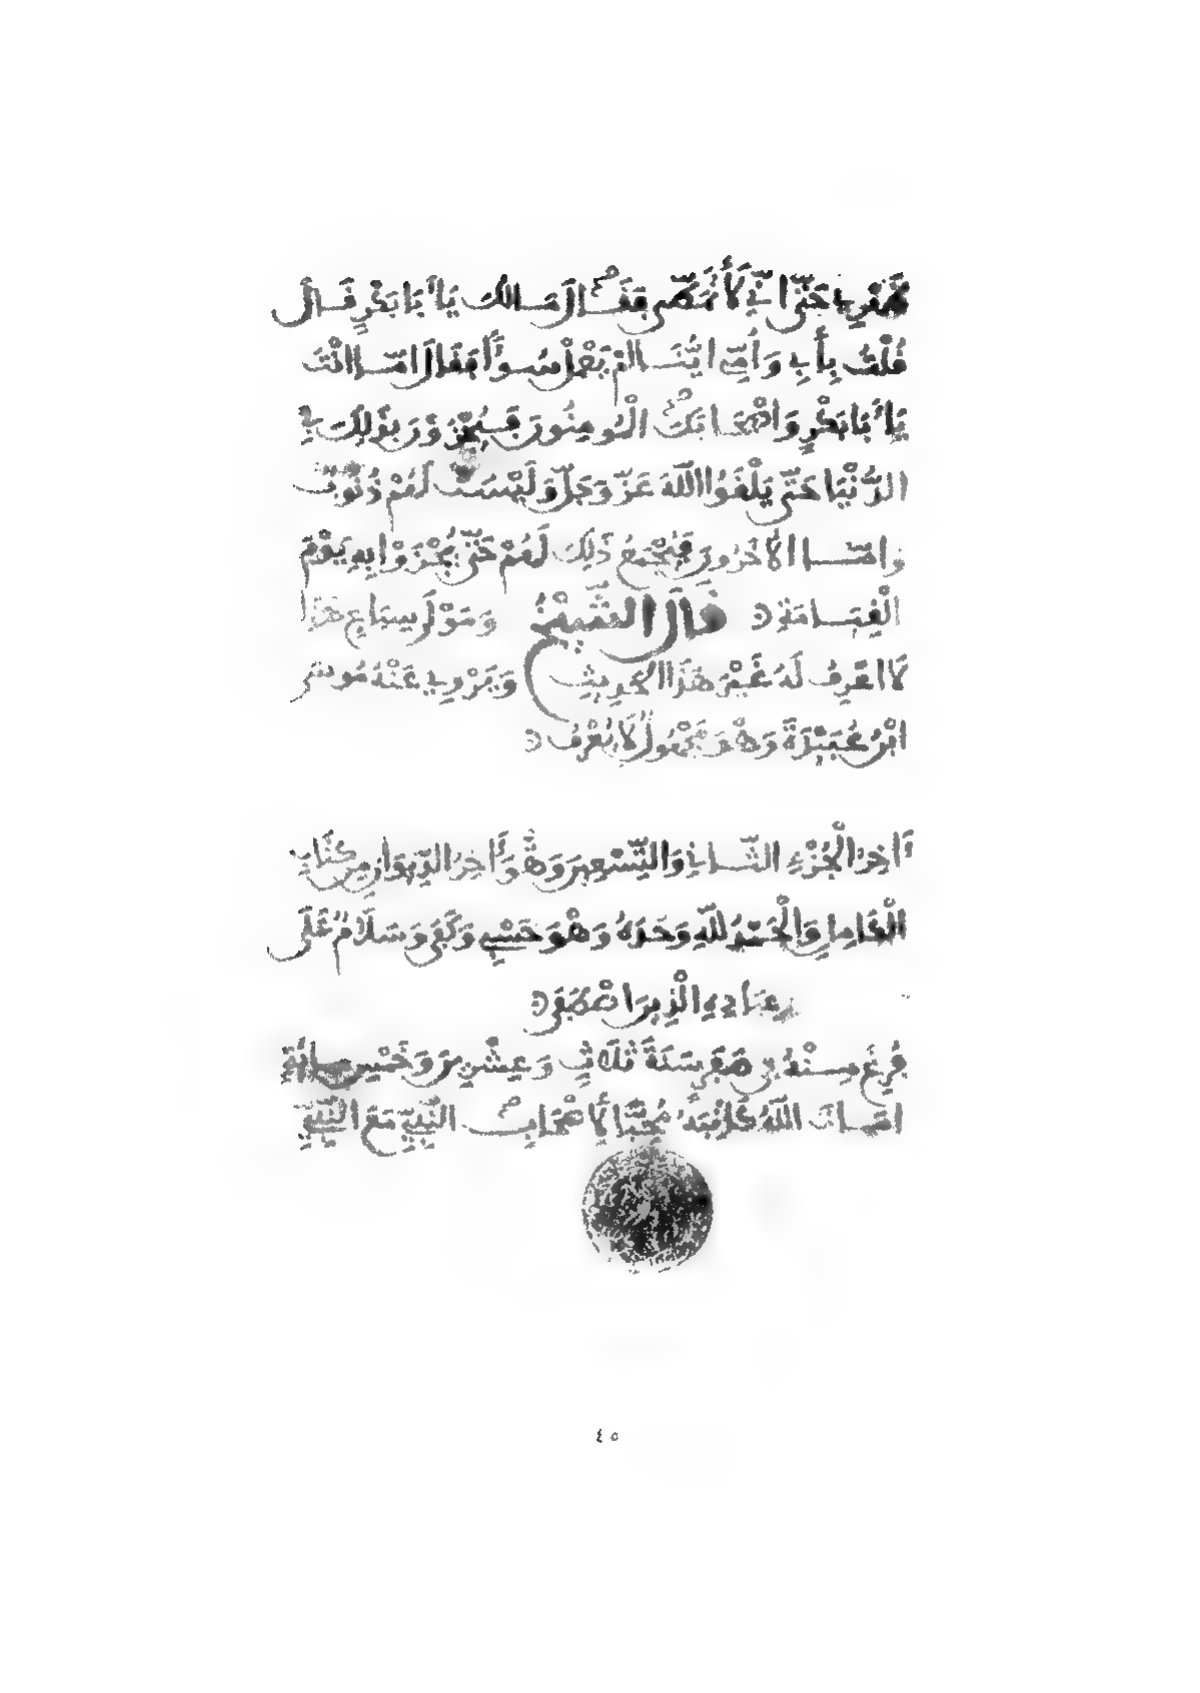 ظَهْرِي حَتَّى إِنِّي لَأَتَمَطَّى فَقَالَ مَا لَكَ يَا أَبَا بَكْرٍ قَالَ
قُلْتُ بِأَبِي وَأُمِّي أَيُّنَا لَمْ يَعْمَلْ سُوءًا فَقَالَ أَمَّا أَنْتَ
يَا أَبَا بَكْرٍ وَأَصْحَابُكَ الْمُومِنُونَ فَيُجْزَوْنَ بِذَلِكَ فِي
الدُّنْيَا حَتَّى يَلْقَوُا اللَّهَ عَزَّ وَجَلَّ وَلَيْسَتْ لَهُمْ ذُنُوبٌ
وَأَمَّا الْآخَرُونَ فَيُجْمَعُ ذَلِكَ لَهُمْ حَتَّى يُجْزَوْا بِهِ يَوْمَ
الْقِيَامَةِ قَالَ الشَّيْخُ وَمَوْلَى سِبَاعٍ هَذَا
لَا أَعْرِفُ لَهُ غَيْرَ هَذَا الْحَدِيثِ وَيَرْوِي عَنْهُ مُوسَى
ابْنُ عُبَيْدَةَ وَهُوَ مَجْهُولٌ لَا يُعْرَفُ
آخِرُ الْجُزْءِ الثَّانِي وَالتِّسْعِينَ وَهُوَ آخِرُ الدِّيوَانِ مِنْ كِتَابِ
الْكَامِلِ وَالْحَمْدُ لِلَّهِ وَحْدَهُ وَهُوَ حَسْبِي وَكَفَى وَسَلَامٌ عَلَى
عِبَادِهِ الَّذِينَ اصْطَفَى
فُرِغَ مِنْهُ فِي صَفَرِ سَنَةَ ثَلَاثٍ وَعِشْرِينَ وَخَمْسِمِائَةٍ
أَمَاتَ اللَّهُ كَاتِبَهُ مُحِبًّا لِأَصْحَابِ النَّبِيِّ مَعَ النَّبِيِّ
٤٥